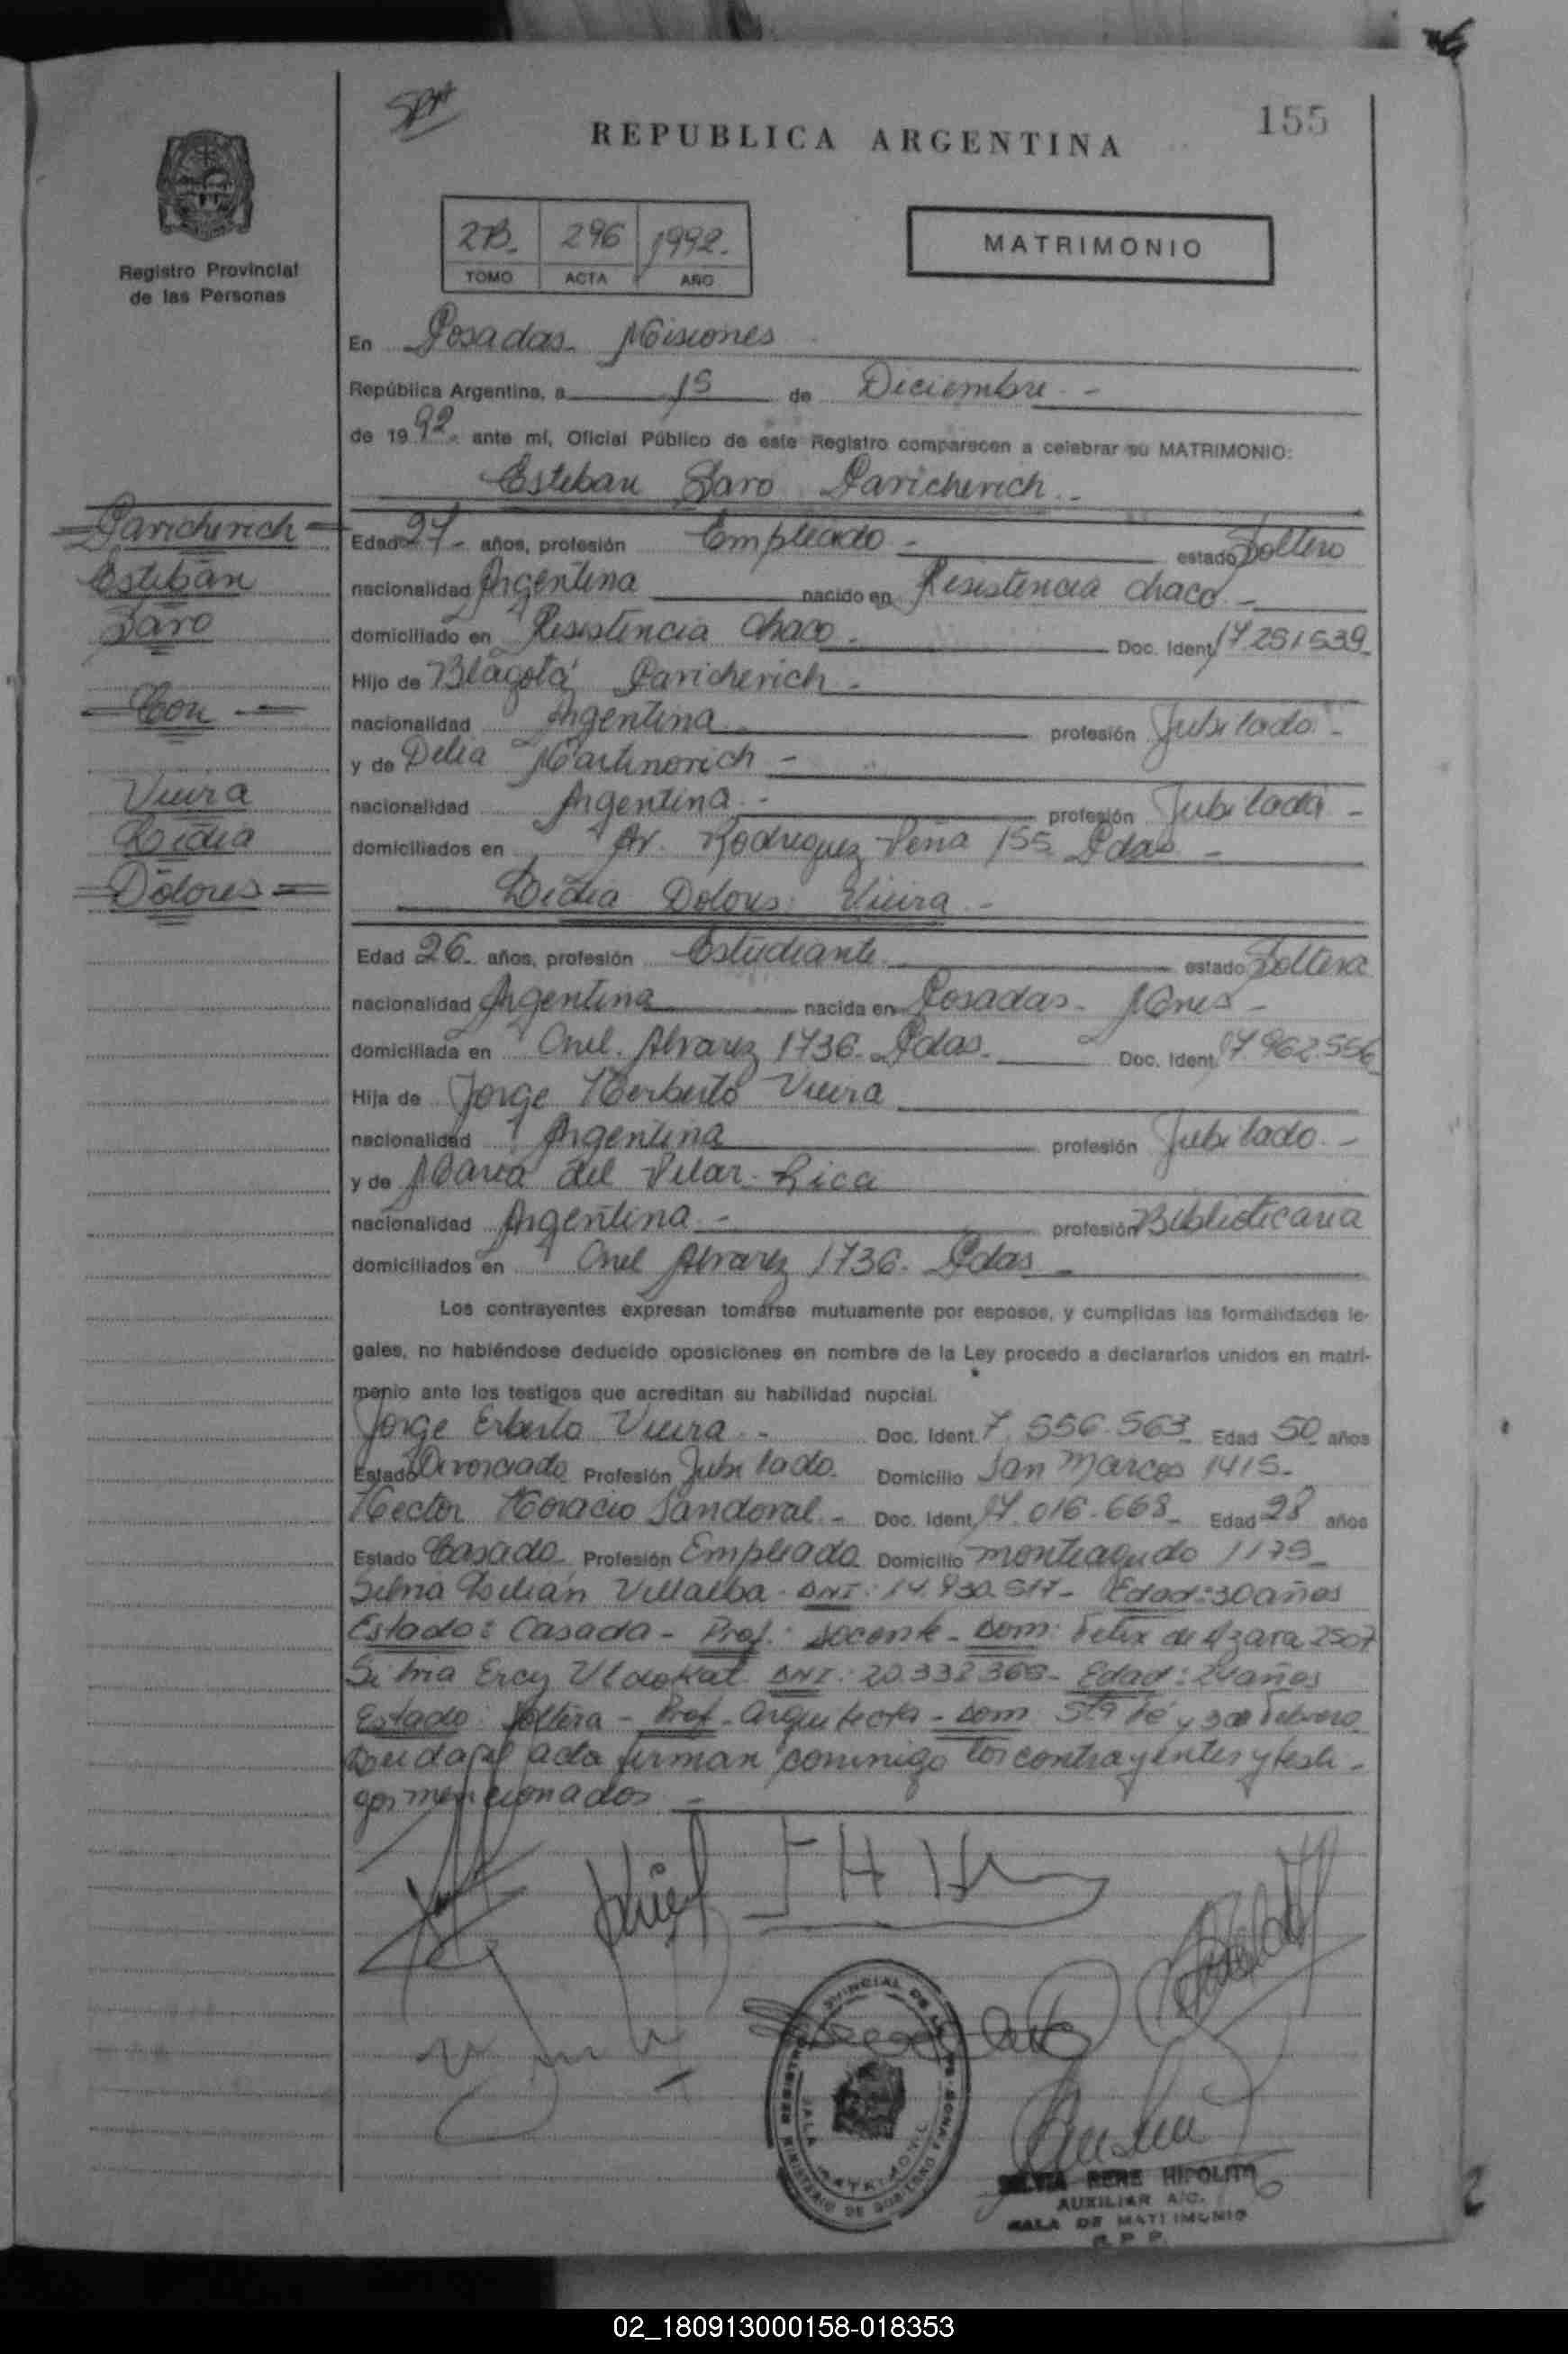 155
REPUBLICA ARGENTINA
Registro Provincial
de las Personas
2B. 296 1992.
TOMO ACTA AÑO
MATRIMONIO
En Posadas Misiones
República Argentina, a 15 de Diciembre -
de 1992. ante mí, Oficial Público de este Registro comparecen a celebrar su MATRIMONIO:
Esteban Paricherich -
Paricherich
Esteban
Con
Vieira
Lidia
Dolores
Edad 27 - años, profesión Empleado - estado Soltero
nacionalidad Argentina nacido en Resistencia Chaco -
domiciliado en Resistencia Chaco. Doc. Ident. 17.251.539
Hijo de Blagota Paricherich -
nacionalidad Argentina profesión Jubilado -
y de Delia Martinovich -
nacionalidad Argentina - profesión Jubilada -
domiciliados en Av. Rodriguez Peña 155 Pdas -
Lidia Dolores Vieira -
Edad 26 - años, profesión Estudiante estado Soltera
nacionalidad Argentina nacida en Posadas - Mnes -
domiciliada en Cnel. Alvarez 1736. Pdas. Doc. Ident. 17.962.556
Hija de Jorge Herberto Vieira
nacionalidad Argentina profesión Jubilado. -
y de Maria del Pilar
nacionalidad Argentina - profesión Bibliotecaria
domiciliados en Cnel Alvarez 1736. Pdas -
Los contrayentes expresan tomarse mutuamente por esposos, y cumplidas las formalidades le-
gales, no habiéndose deducido oposiciones en nombre de la Ley procedo a declararlos unidos en matri-
monio ante los testigos que acreditan su habilidad nupcial.
Jorge Erberto Vieira - Doc. Ident. 7.556.563 Edad 50 años
Estado Divorciado Profesión Jubilado. Domicilio San Marcos 1415-
Hector Horacio Sandoval - Doc. Ident. 17.016.668 - Edad 28 años
Estado Casado Profesión Empleado Domicilio Monteagudo 1179-
Silvia Lilián Villalba - DNI: 14.930.517- Edad: 30 años
Estado: Casada - Prof.: Docente - Dom: Felix de Azara 2507
Silvia Ercy DNI: 20.338.369- Edad: 24 años
Estado: Soltera - Prof - Arquitecta - Dom Sta Fé y 3 de Febrero
Leida el acta firman conmigo los contrayentes y testi-
gos mencionados -
SILVIA RENE HIPOLITO
AUXILIAR A/C.
SALA DE MATRIMONIO
R. P. P.
02_180913000158-018353